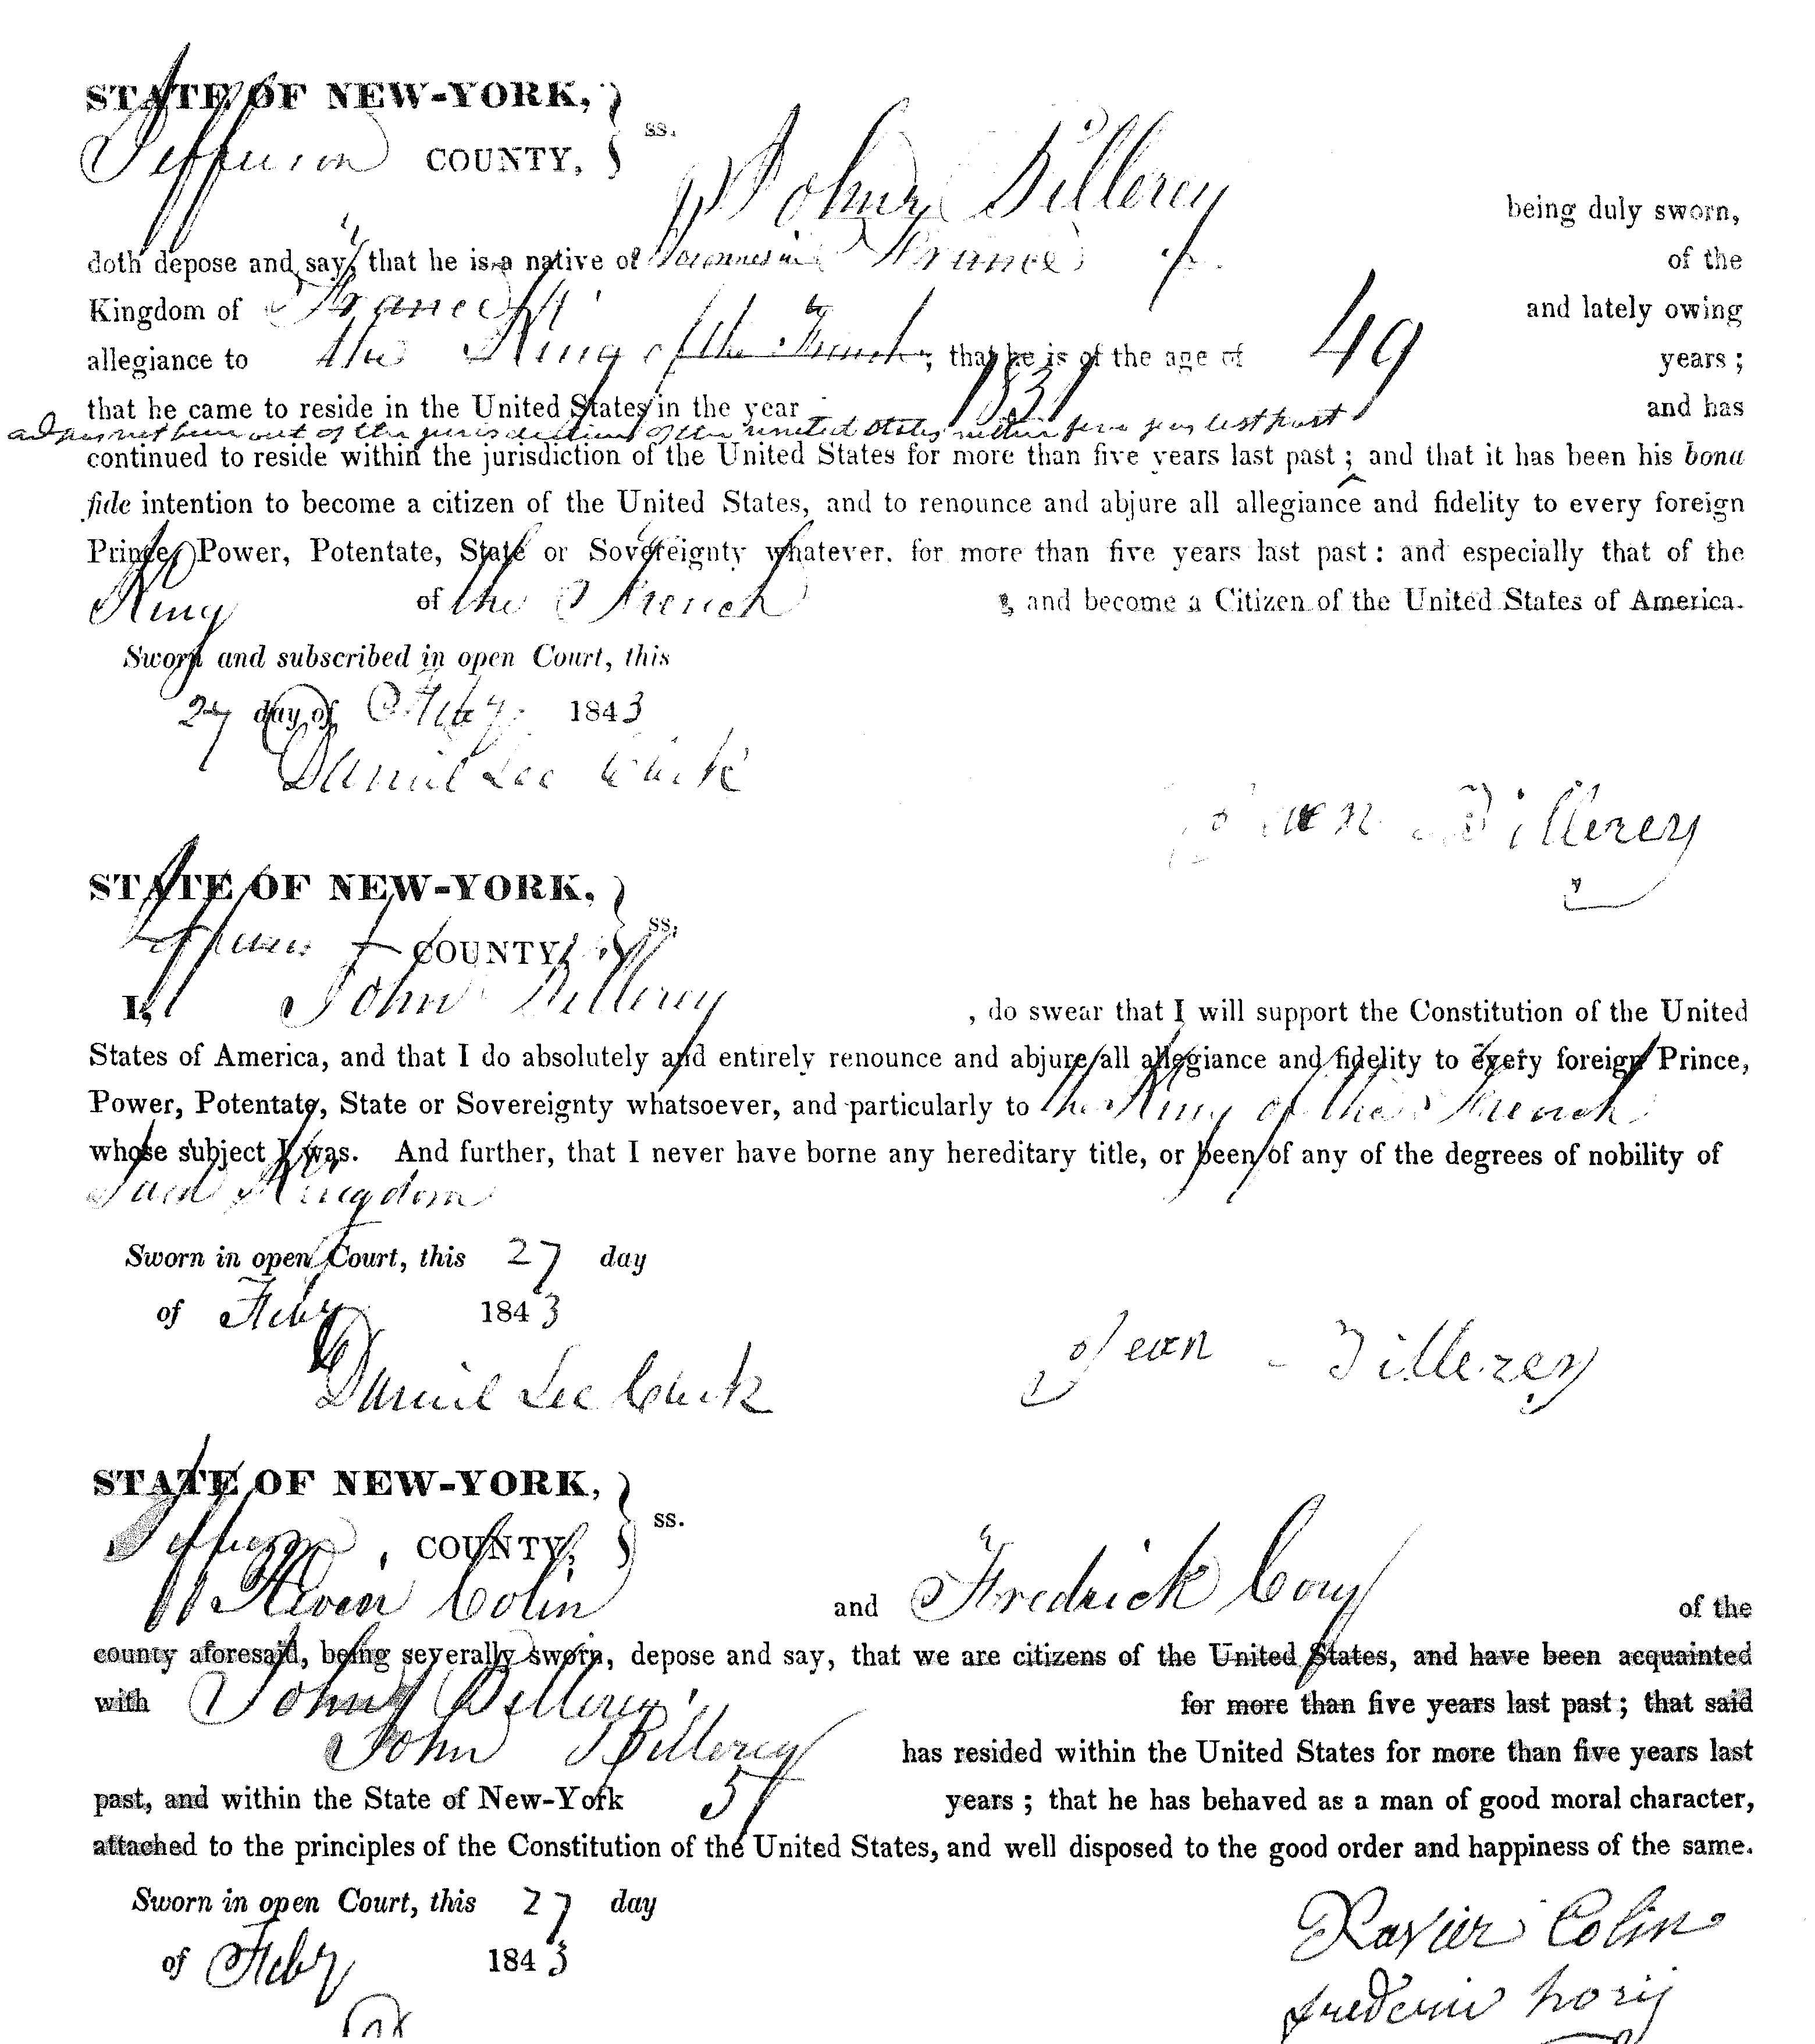 STATE OF NEW-YORK,
Jefferson COUNTY, ss.
John Billerey being duly sworn,
doth depose and say, that he is a native of France of the
Kingdom of France and lately owing
allegiance to the King of the French; that he is of the age of 49 years;
that he came to reside in the United States in the year 1831 and has
and has not been out of the jurisdiction of the united States within five years last past
continued to reside within the jurisdiction of the United States for more than five years last past; and that it has been his bona
fide intention to become a citizen of the United States, and to renounce and abjure all allegiance and fidelity to every foreign
Prince, Power, Potentate, State or Sovereignty whatever. for more than five years last past: and especially that of the
King of the French, and become a Citizen of the United States of America.
Sworn and subscribed in open Court, this
27 day of Feby 1843
Daniel Lee Clerk
Jean Billerey
STATE OF NEW-YORK,
Jefferson COUNTY, ss.
I, John Billerey, do swear that I will support the Constitution of the United
States of America, and that I do absolutely and entirely renounce and abjure all allegiance and fidelity to every foreign Prince,
Power, Potentate, State or Sovereignty whatsoever, and particularly to the King of the French
whose subject I was. And further, that I never have borne any hereditary title, or been of any of the degrees of nobility of
Said Kingdom
Sworn in open Court, this 27 day
of Feby 1843
Daniel Lee Clerk
Jean Billerey
STATE OF NEW-YORK,
Jefferson COUNTY, ss.
Colin and Fredrick Cory of the
county aforesaid, being severally sworn, depose and say, that we are citizens of the United States, and have been acquainted
with John Billerey for more than five years last past; that said
John Billerey has resided within the United States for more than five years last
past, and within the State of New-York 5 years; that he has behaved as a man of good moral character,
attached to the principles of the Constitution of the United States, and well disposed to the good order and happiness of the same.
Sworn in open Court, this 27 day
of Feby 1843
Xavier Colin